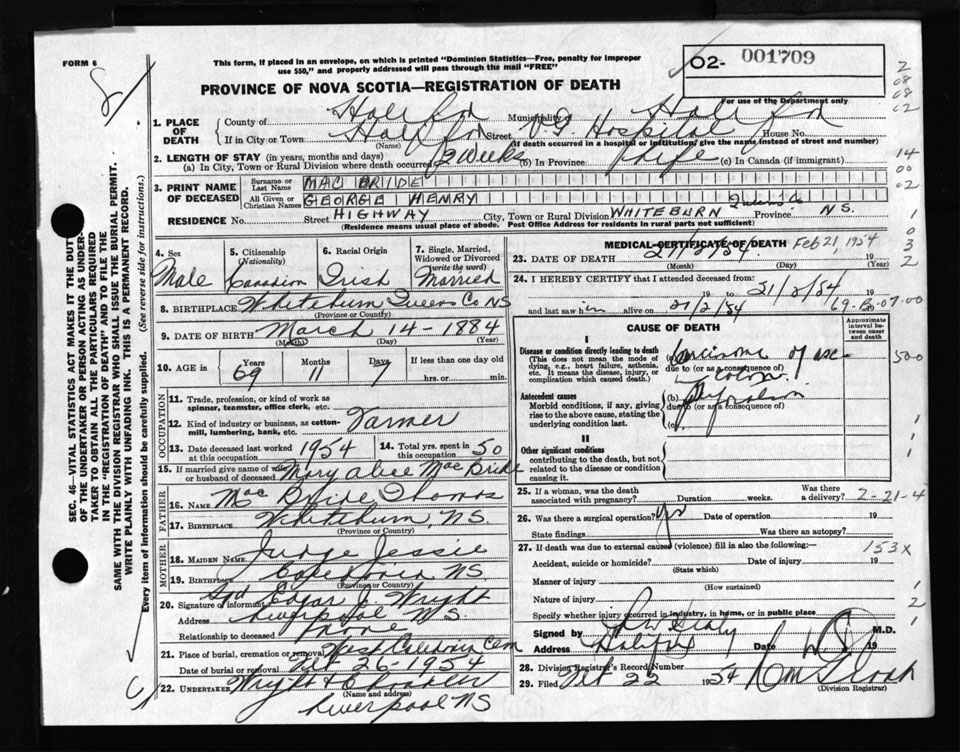 FORM 6
This form, if placed in an envelope, on which is printed "Dominion Statistics—Free, penalty for improper
use $50," and properly addressed will pass through the mail "FREE"
O2- 001709
PROVINCE OF NOVA SCOTIA—REGISTRATION OF DEATH
For use of the Department only
1. PLACE OF DEATH
County of Halifax Municipality of Halifax
If in City or Town Halifax Street V G Hospital House No.
(Name) (If death occurred in a hospital or institution, give the name instead of street and number)
2. LENGTH OF STAY (in years, months and days)
(a) In City, Town or Rural Division where death occurred 3 Weeks (b) In Province Life (c) In Canada (if immigrant)
3. PRINT NAME OF DECEASED
Surname or Last Name MAC BRIDE
All Given or Christian Names GEORGE HENRY
Queens Co
RESIDENCE No. Street HIGHWAY City, Town or Rural Division WHITEBURN Province N.S.
(Residence means usual place of abode. Post Office Address for residents in rural parts not sufficient)
4. Sex Male
5. Citizenship (Nationality) Canadian
6. Racial Origin Irish
7. Single, Married, Widowed or Divorced (write the word) Married
8. BIRTHPLACE Whiteburn Queens Co NS
(Province or Country)
9. DATE OF BIRTH March 14 - 1884
(Month) (Day) (Year)
10. AGE in Years 69 Months 11 Days 7 If less than one day old hrs. or min.
OCCUPATION
11. Trade, profession, or kind of work as spinner, teamster, office clerk, etc.
12. Kind of industry or business, as cotton-mill, lumbering, bank, etc. Farmer
13. Date deceased last worked at this occupation 1954
14. Total yrs. spent in this occupation 50
15. If married give name of wife or husband of deceased Mary Alice MacBride
FATHER
16. NAME MacBride Thomas
17. BIRTHPLACE Whiteburn, N.S.
(Province or Country)
MOTHER
18. MAIDEN NAME Judge Jessie
19. BIRTHPLACE N.S.
(Province or Country)
20. Signature of informant Sgd Edgar J. Wright
Address Liverpool N.S.
Relationship to deceased None
21. Place of burial, cremation or removal West Caledonia Cem
Date of burial or removal Feb 26 - 1954
22. UNDERTAKER Wright &
(Name and address)
Liverpool NS
MEDICAL CERTIFICATE OF DEATH Feb 21, 1954
23. DATE OF DEATH 21/2/54 19
(Month) (Day) (Year)
24. I HEREBY CERTIFY that I attended deceased from
19 to 21/2/54
and last saw h im alive on 21/2/54 19
69-B-07-00
CAUSE OF DEATH
Approximate interval between onset and death
I
Disease or condition directly leading to death
(This does not mean the mode of dying, e.g., heart failure, asthenia, etc. It means the disease, injury, or complication which caused death.)
(a) Carcinoma of asc
due to (or as a consequence of)
colon
Antecedent causes
Morbid conditions, if any, giving rise to the above cause, stating the underlying condition last.
(b)
due to (or as a consequence of)
(c)
II
Other significant conditions
contributing to the death, but not related to the disease or condition causing it.
25. If a woman, was the death associated with pregnancy? Duration weeks. Was there a delivery? 2-21-4
26. Was there a surgical operation? yes Date of operation 19
State findings Was there an autopsy?
27. If death was due to external causes (violence) fill in also the following:—
153X
Accident, suicide or homicide? Date of injury 19
(State which)
Manner of injury
(How sustained)
Nature of injury
Specify whether injury occurred in industry, in home, or in public place
Signed by M.D.
Address Halifax Date 19
28. Division Registrar's Record Number
29. Filed Feb 22 1954
(Division Registrar)
SEC. 46—VITAL STATISTICS ACT MAKES IT THE DUTY
OF THE UNDERTAKER OR PERSON ACTING AS UNDER-
TAKER TO OBTAIN ALL THE PARTICULARS REQUIRED
IN THE "REGISTRATION OF DEATH" AND TO FILE THE
SAME WITH THE DIVISION REGISTRAR WHO SHALL ISSUE THE BURIAL PERMIT.
WRITE PLAINLY WITH UNFADING INK. THIS IS A PERMANENT RECORD.
Every item of information should be carefully supplied. (See reverse side for instructions.)
2
08
08
02
14
00
02
1
0
3
2
500
1
1
1
2